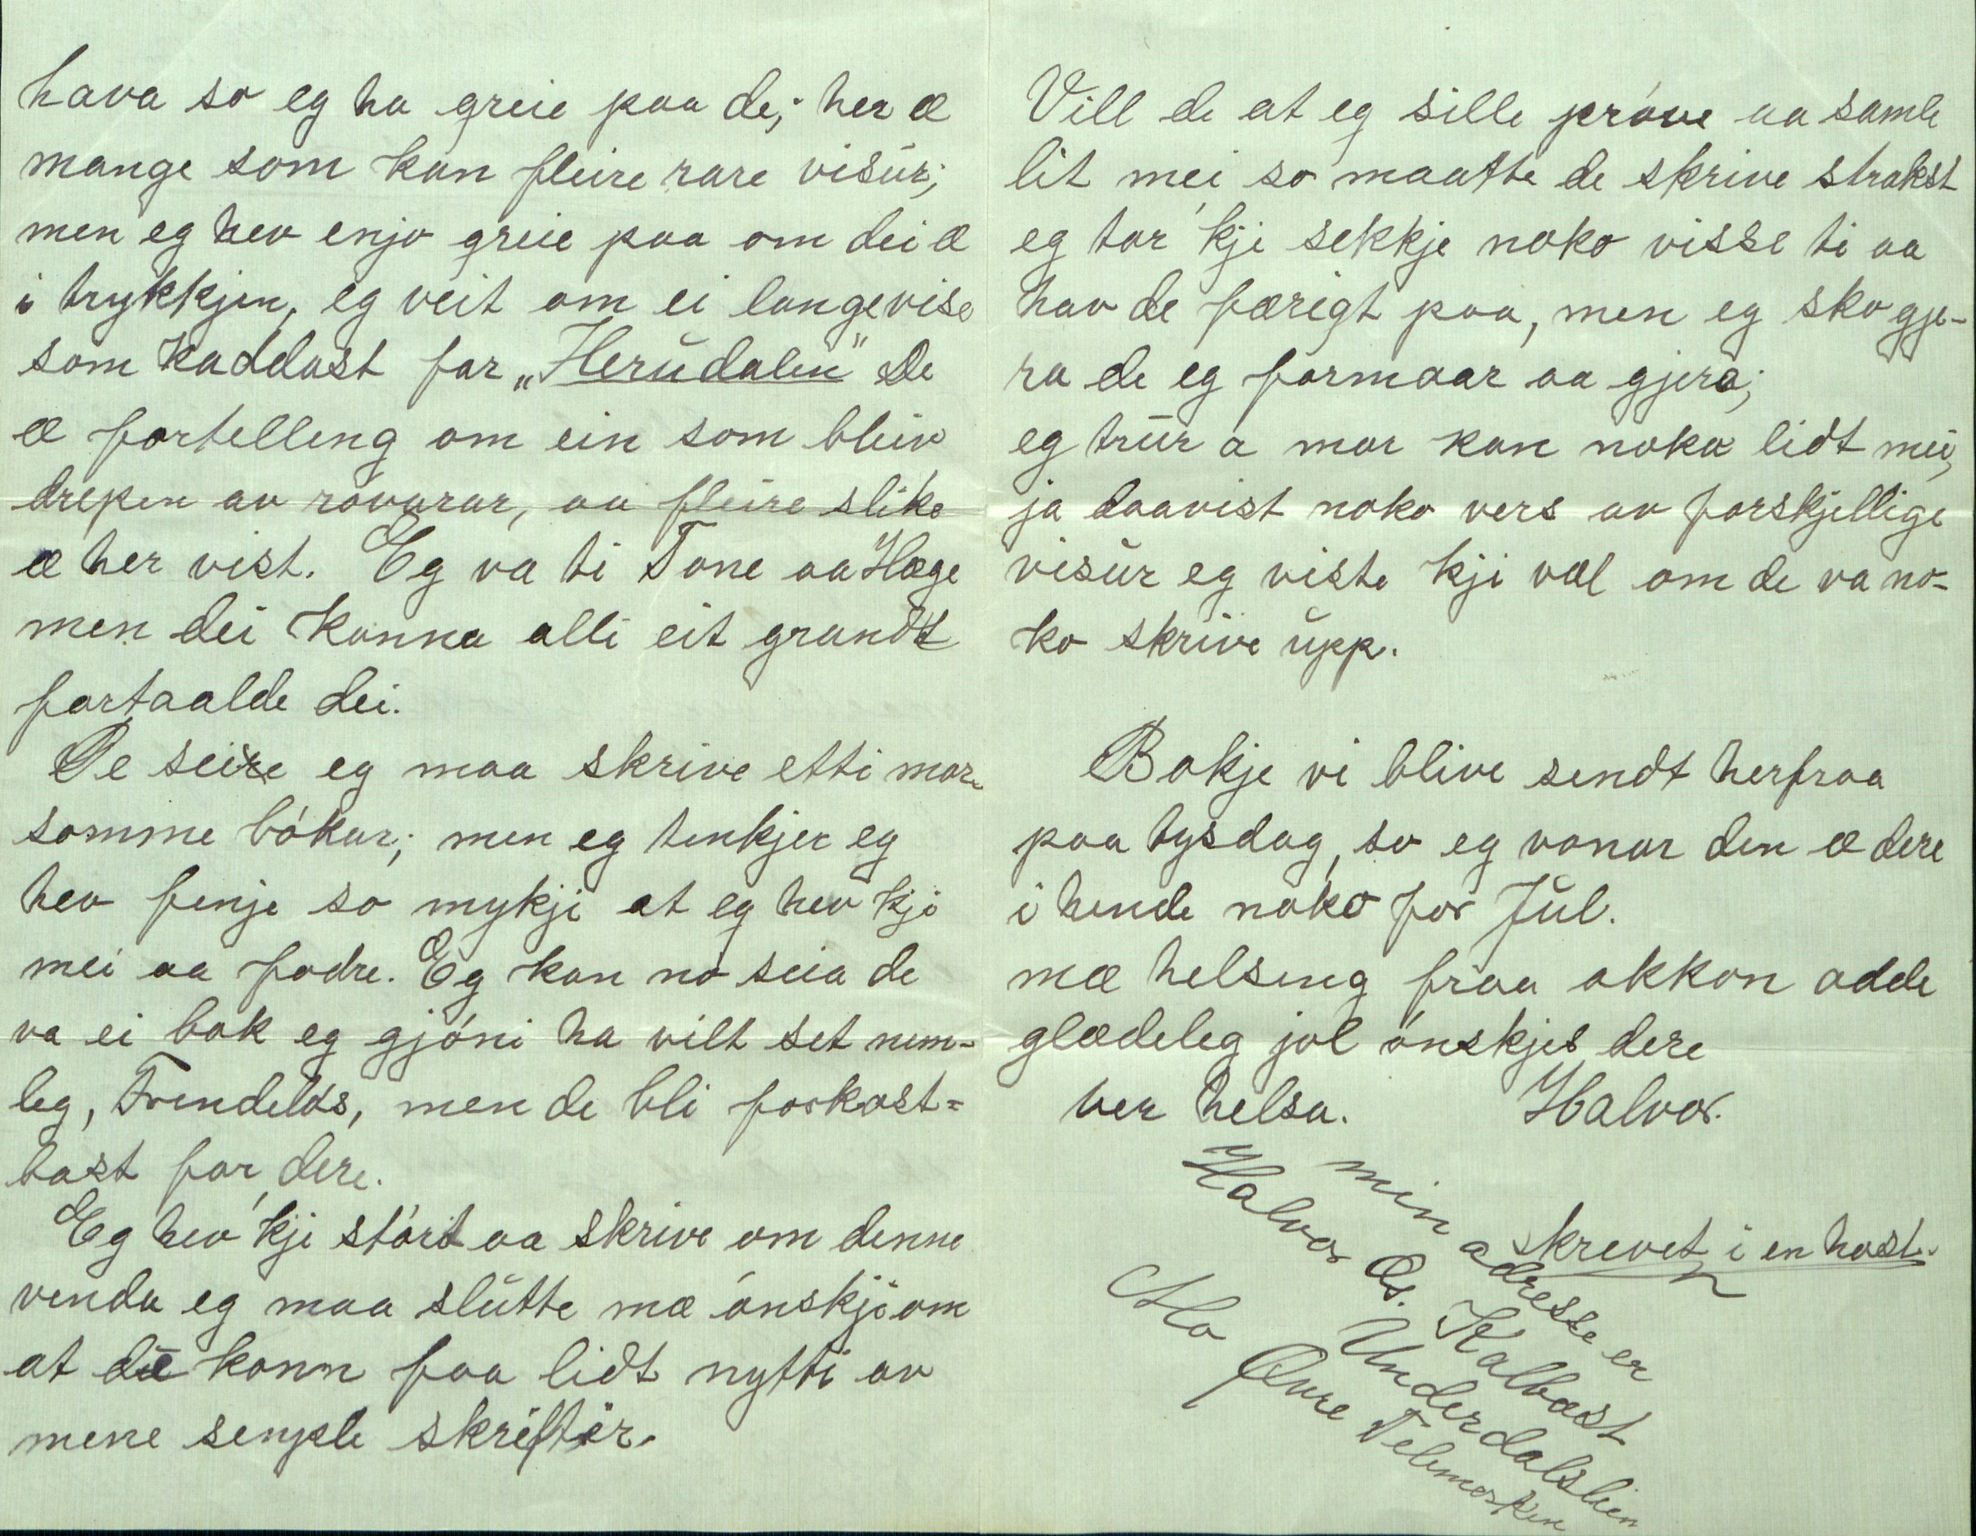 hava so eg ha greie paa de; her æ
mange som kan fleire rare visur;
men eg hev enjo greie paa om dei æ
i trykkjen, eg veit om ei langevise
som kaddast for „Herudalen" De
æ fortelling om ein som bleiv
drepen av róvarar, aa fleire slike
æ her vist. Eg va ti Tone aa Hæge
men dei kanna alli eit grandt
fortaalde dei.
De seire eg maa skrive etti mor
somme bókar; men eg tenkjer eg
hev fenje so mykji at eg hev kji
mei aa fodre. Eg kan no seia de
va ei bok eg gjóni ha vilt set nem-
leg, Trendelds, men de bli forkost=
bast for dere.
Eg hev kji stórt aa skrive om denne
venda eg maa slutte mæ ónskji om
at de kann faa lidt nytti av
mene semple skrifter.
Vill de at eg sille próve aa samle
lit mei so maatte de skrive strakst
eg tor kji sekkje noko visse ti aa
hav de færigt paa, men eg sko gje-
ra de eg formaar aa gjera;
eg trur a mor kan noko lidt mei,
ja daavist noko vers av forskjellige
visur eg viste kji væl om de va no-
ko skrive upp.
Bokje vi blive sendt herfraa
paa tysdag, so eg vonar den æ dere
i hende noko for Jul.
mæ helseng fraa okkon adde
glædeleg jol ónskjes dere
ver helsa. Halvor.
skrevet i en hast.
min adresse er
Halvor Os. Kalbæst
Underdalslien
Mo
Øvre Telemarken